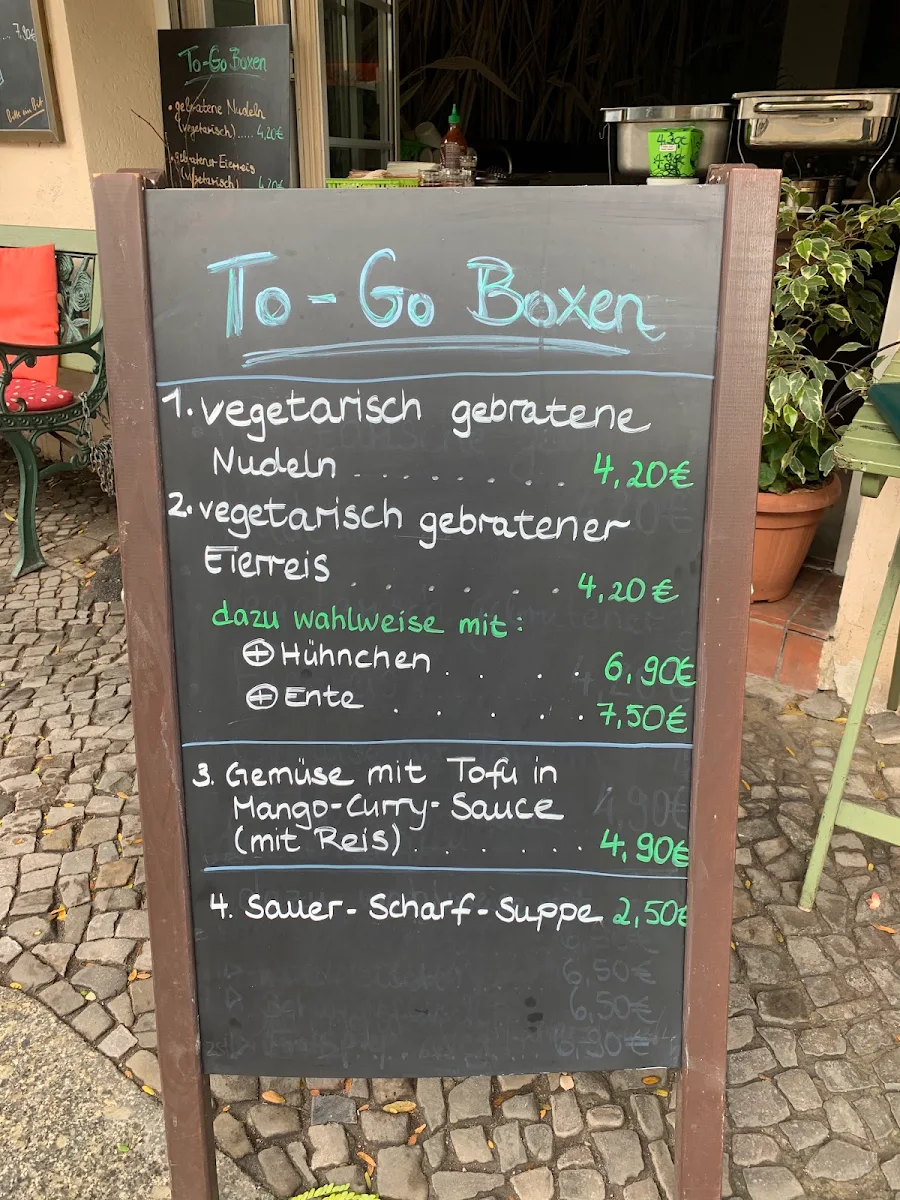 ... 7,90€
To-Go Boxen
• gebratene Nudeln
(vegetarisch)..... 4,20€
• gebratener Eierreis
(vegetarisch) 4,20€
To-Go Boxen
1. vegetarisch gebratene
Nudeln . . . . . . . 4,20€
2. vegetarisch gebratener
Eierreis . . . . . . 4,20€
dazu wahlweise mit:
⊕ Hühnchen . . . . 6,90€
⊕ Ente . . . . . 7,50€
3. Gemüse mit Tofu in
Mango-Curry-Sauce
(mit Reis) . . . . . . 4,90€
4. Sauer-Scharf-Suppe 2,50€
6,50€
6,50€